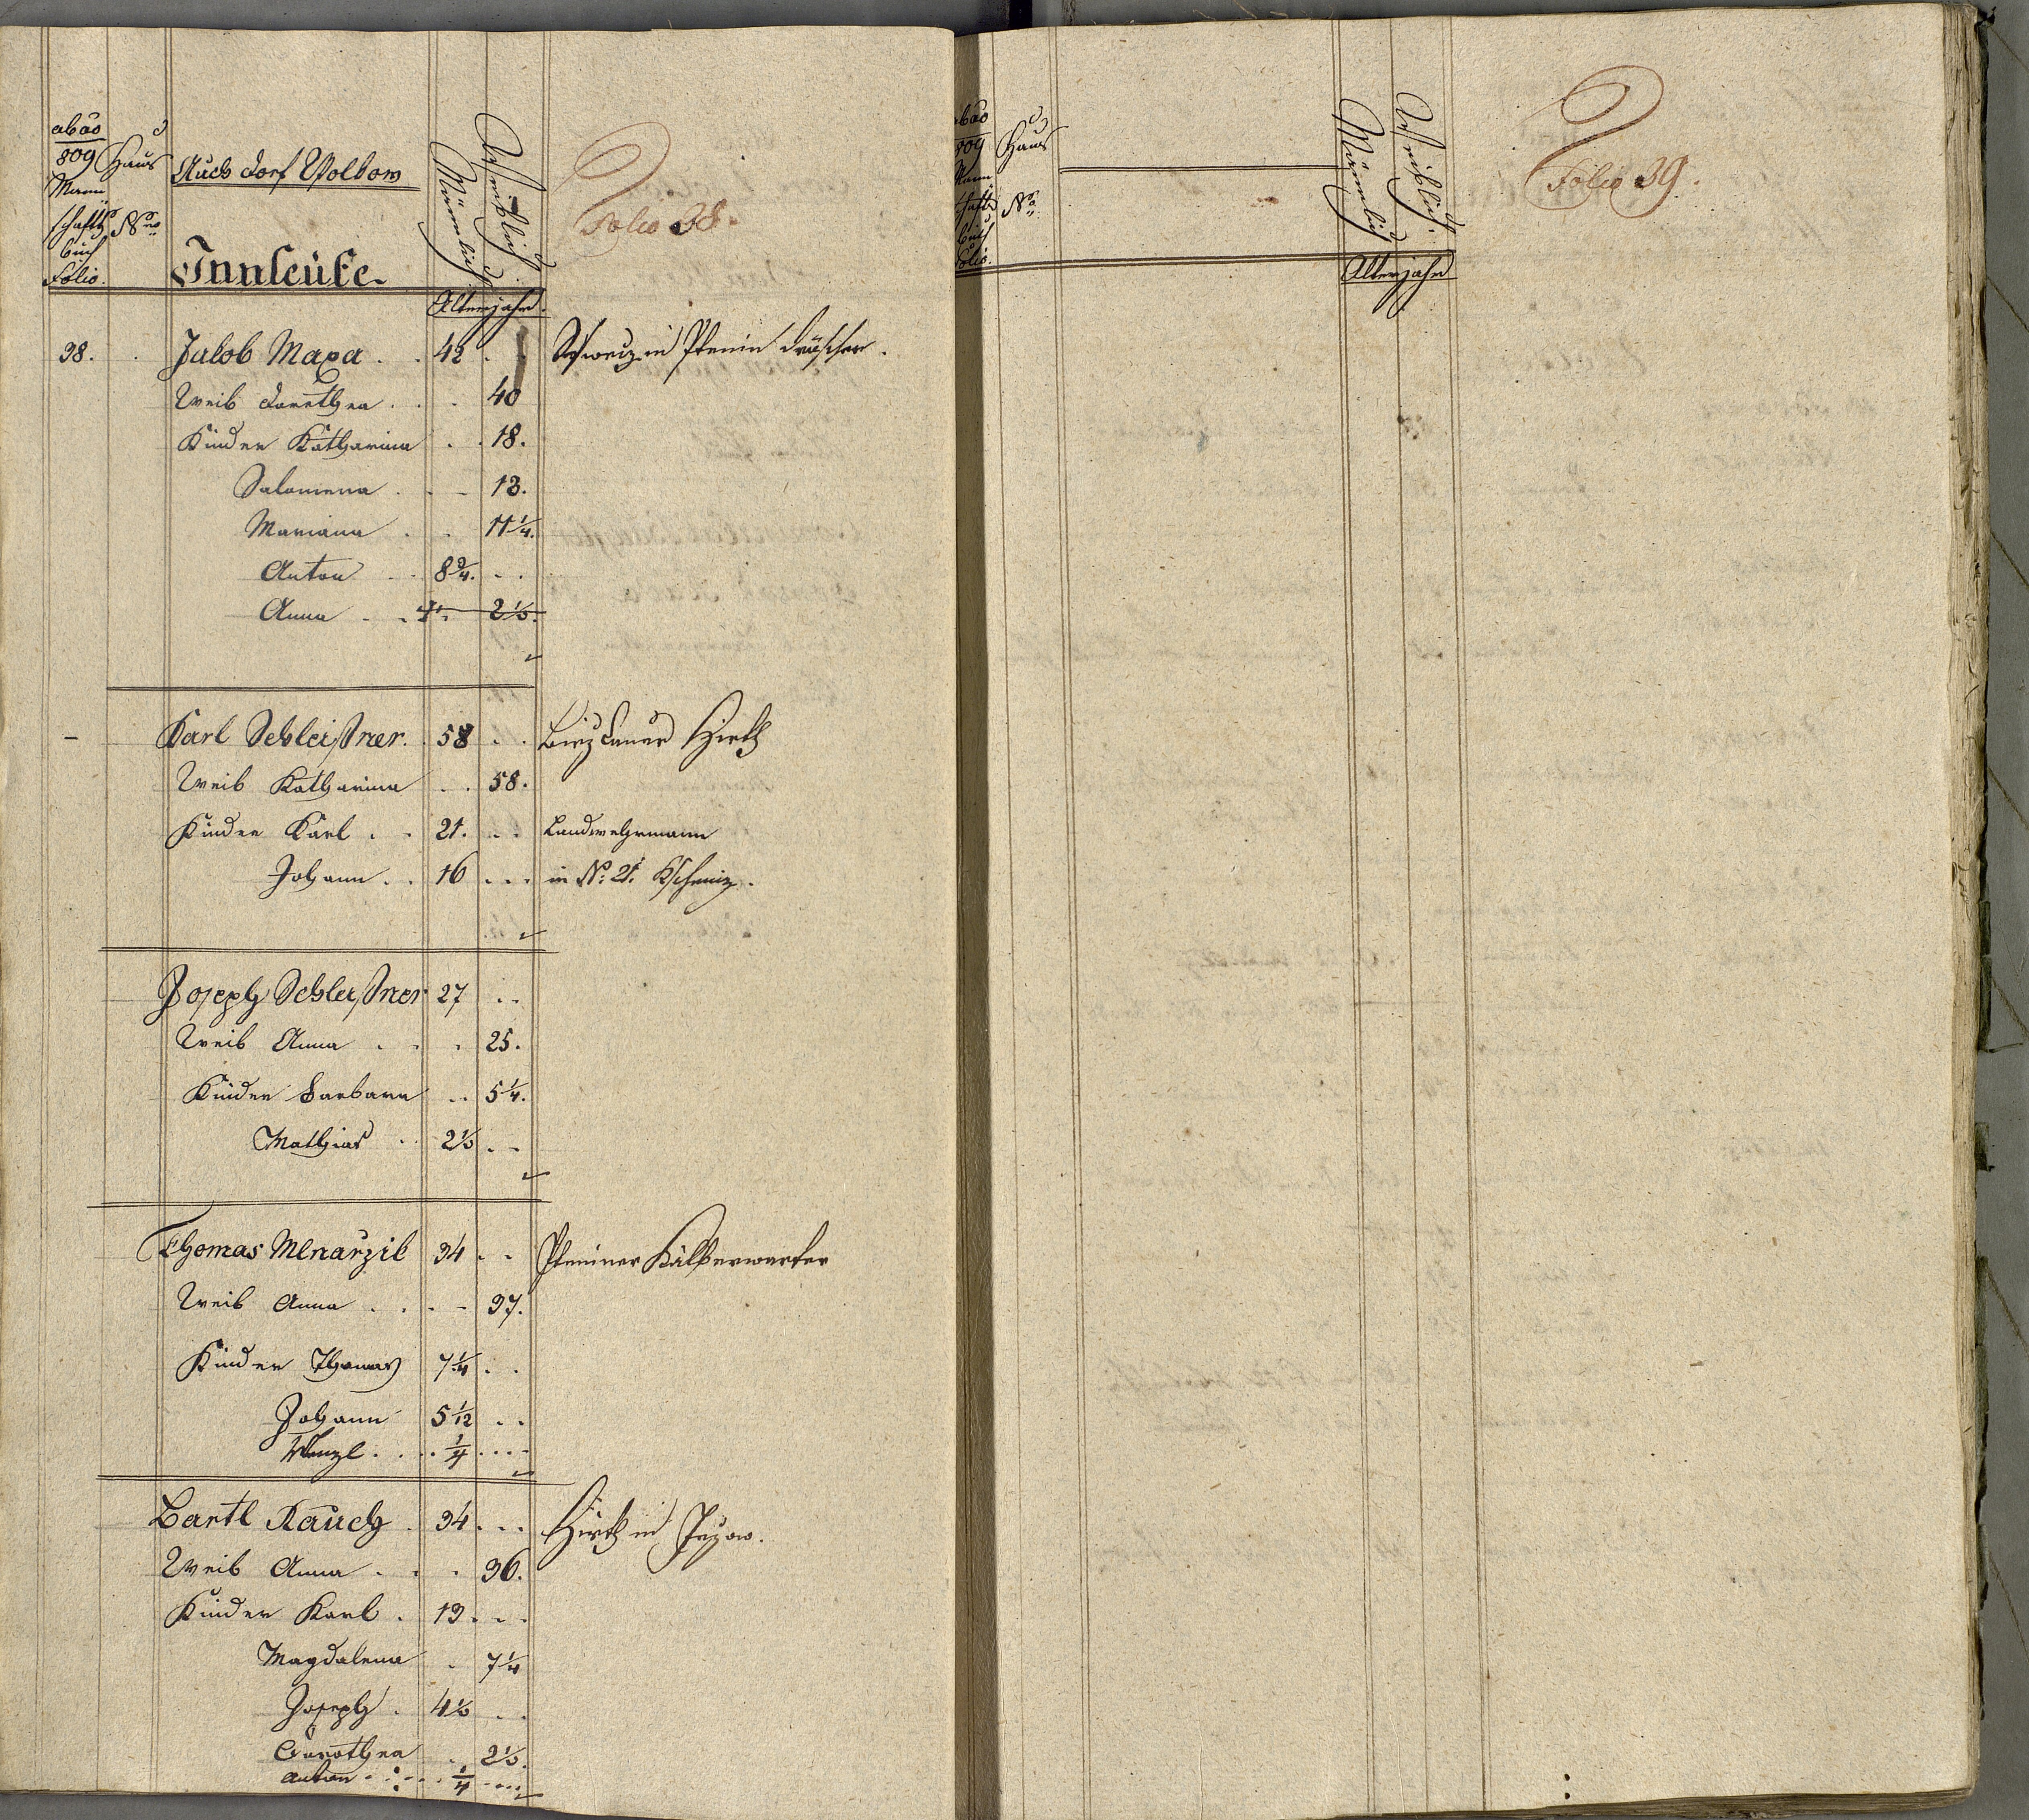 ab aō
809
Mann
schafts
buch
Folio.
Haus
Nro
Auch dorf Wolkow
Männlich
Weiblich
Folio 38.
Innleüte.
Altersjahre.
38. Jakob Maxa . . 42 . .
Weib Dorothea . . . 40
Kinder Katharina . . 18.
Salomena . . - 13.
Mariana . . 11 1/4.
Anton . . 8 3/4. . .
Anna . . 4 1/. 2 1/2.
Karl Schleißner. . 58 . . Hirth
Weib Katharina . . 58.
Kinder Karl . . 21. . . Landwehrmann
Johann . . 16 . . . in No. 21.
Joseph Schleißner 27 . .
Weib Anna . . . 25.
Kinder Barbara . . 5 1/4.
Mathias . . 2 1/2 . .
Thomas Mlnarzik 34 . . Pteniner Kälberwarter
Weib Anna . . . - 37.
Kinder Thomas 7 1/4 . .
Johann 5 1/12 . .
Wenzl . . . . 1/4 . . . .
Bartl Rauch . 34 . . . Hirth in
Weib Anna . . . 36.
Kinder Karl . 13 . . .
Magdalena . 7 1/4
Joseph . 4 1/2 . .
Dorothea . 2 1/2.
Anton . . . . . 1/4 . . . .
ab aō
809
Mann
schafts
buch
Folio.
Haus
Nro
Männlich
Weiblich.
Altersjahre
Folio 39.